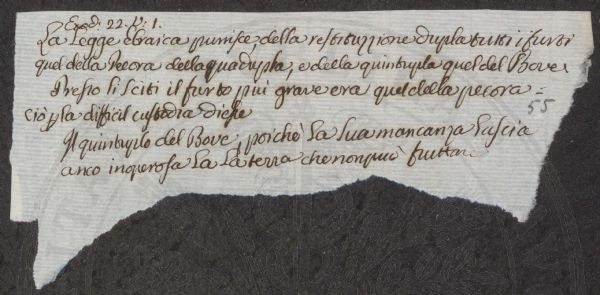 Exod. 22. v. 1.
La Legge ebraica punisce, della restituzzione dupla tutti i furti
quel della pecora della quadrupla, e della quintupla quel del Bove.
Presso li Sciti il furto più grave era quel della pecora
ciò p la difficil custodia di esse
55
Il quintuplo del Bove, poichè La Sua mancanza Lascia
anco inoperosa La La terra che non può fruttare